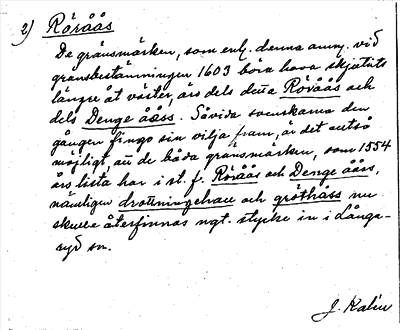 2) Röråås
De gränsmärken, som enl. denna anm. vid
gränsbestämningen 1603 böra hava skjutits
längre åt väster, äro dels detta Röråås och
dels Denge ååss. Såvida svenskarna den
gången fingo sin vilja fram, är det alltså
möjligt, att de båda gränsmärken, som 1554
års lista har i st. f. Röråås och Denge ååss,
nämligen drottningehall och gröthåss nu
skulle återfinnas ngt. stycke in i Långa-
ryd sn.
J. Kalén